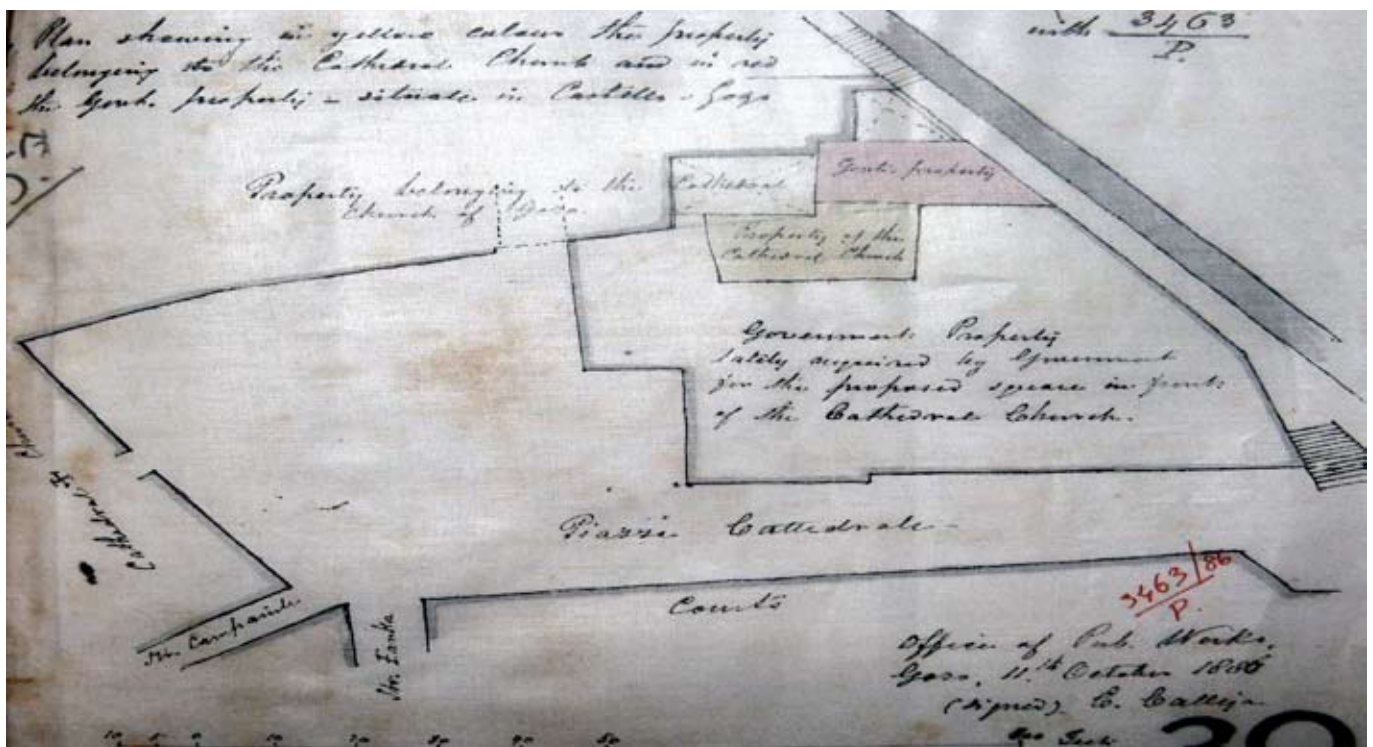 Plan shewing in yellow colour the property
belonging to the Cathedral Church and in red
the Govt. property - situate in Castello - Gozo
with 3463
P.
Property belonging to the
Church of Gozo.
Cathedral
Govt. property
Property of the
Cathedral Church
Government Property
lately acquired by Government
for the proposed square in front
of the Cathedral Church.
Cathedral
Piazza Cattedrale -
Str. Campanile
Str. Fanka
Courts
3463/86
P.
Office of Pub. Works.
Gozo, 11.th October 1886
(signed) C. Calleja
10 5 0 10 20 30 40 50
Feet
39